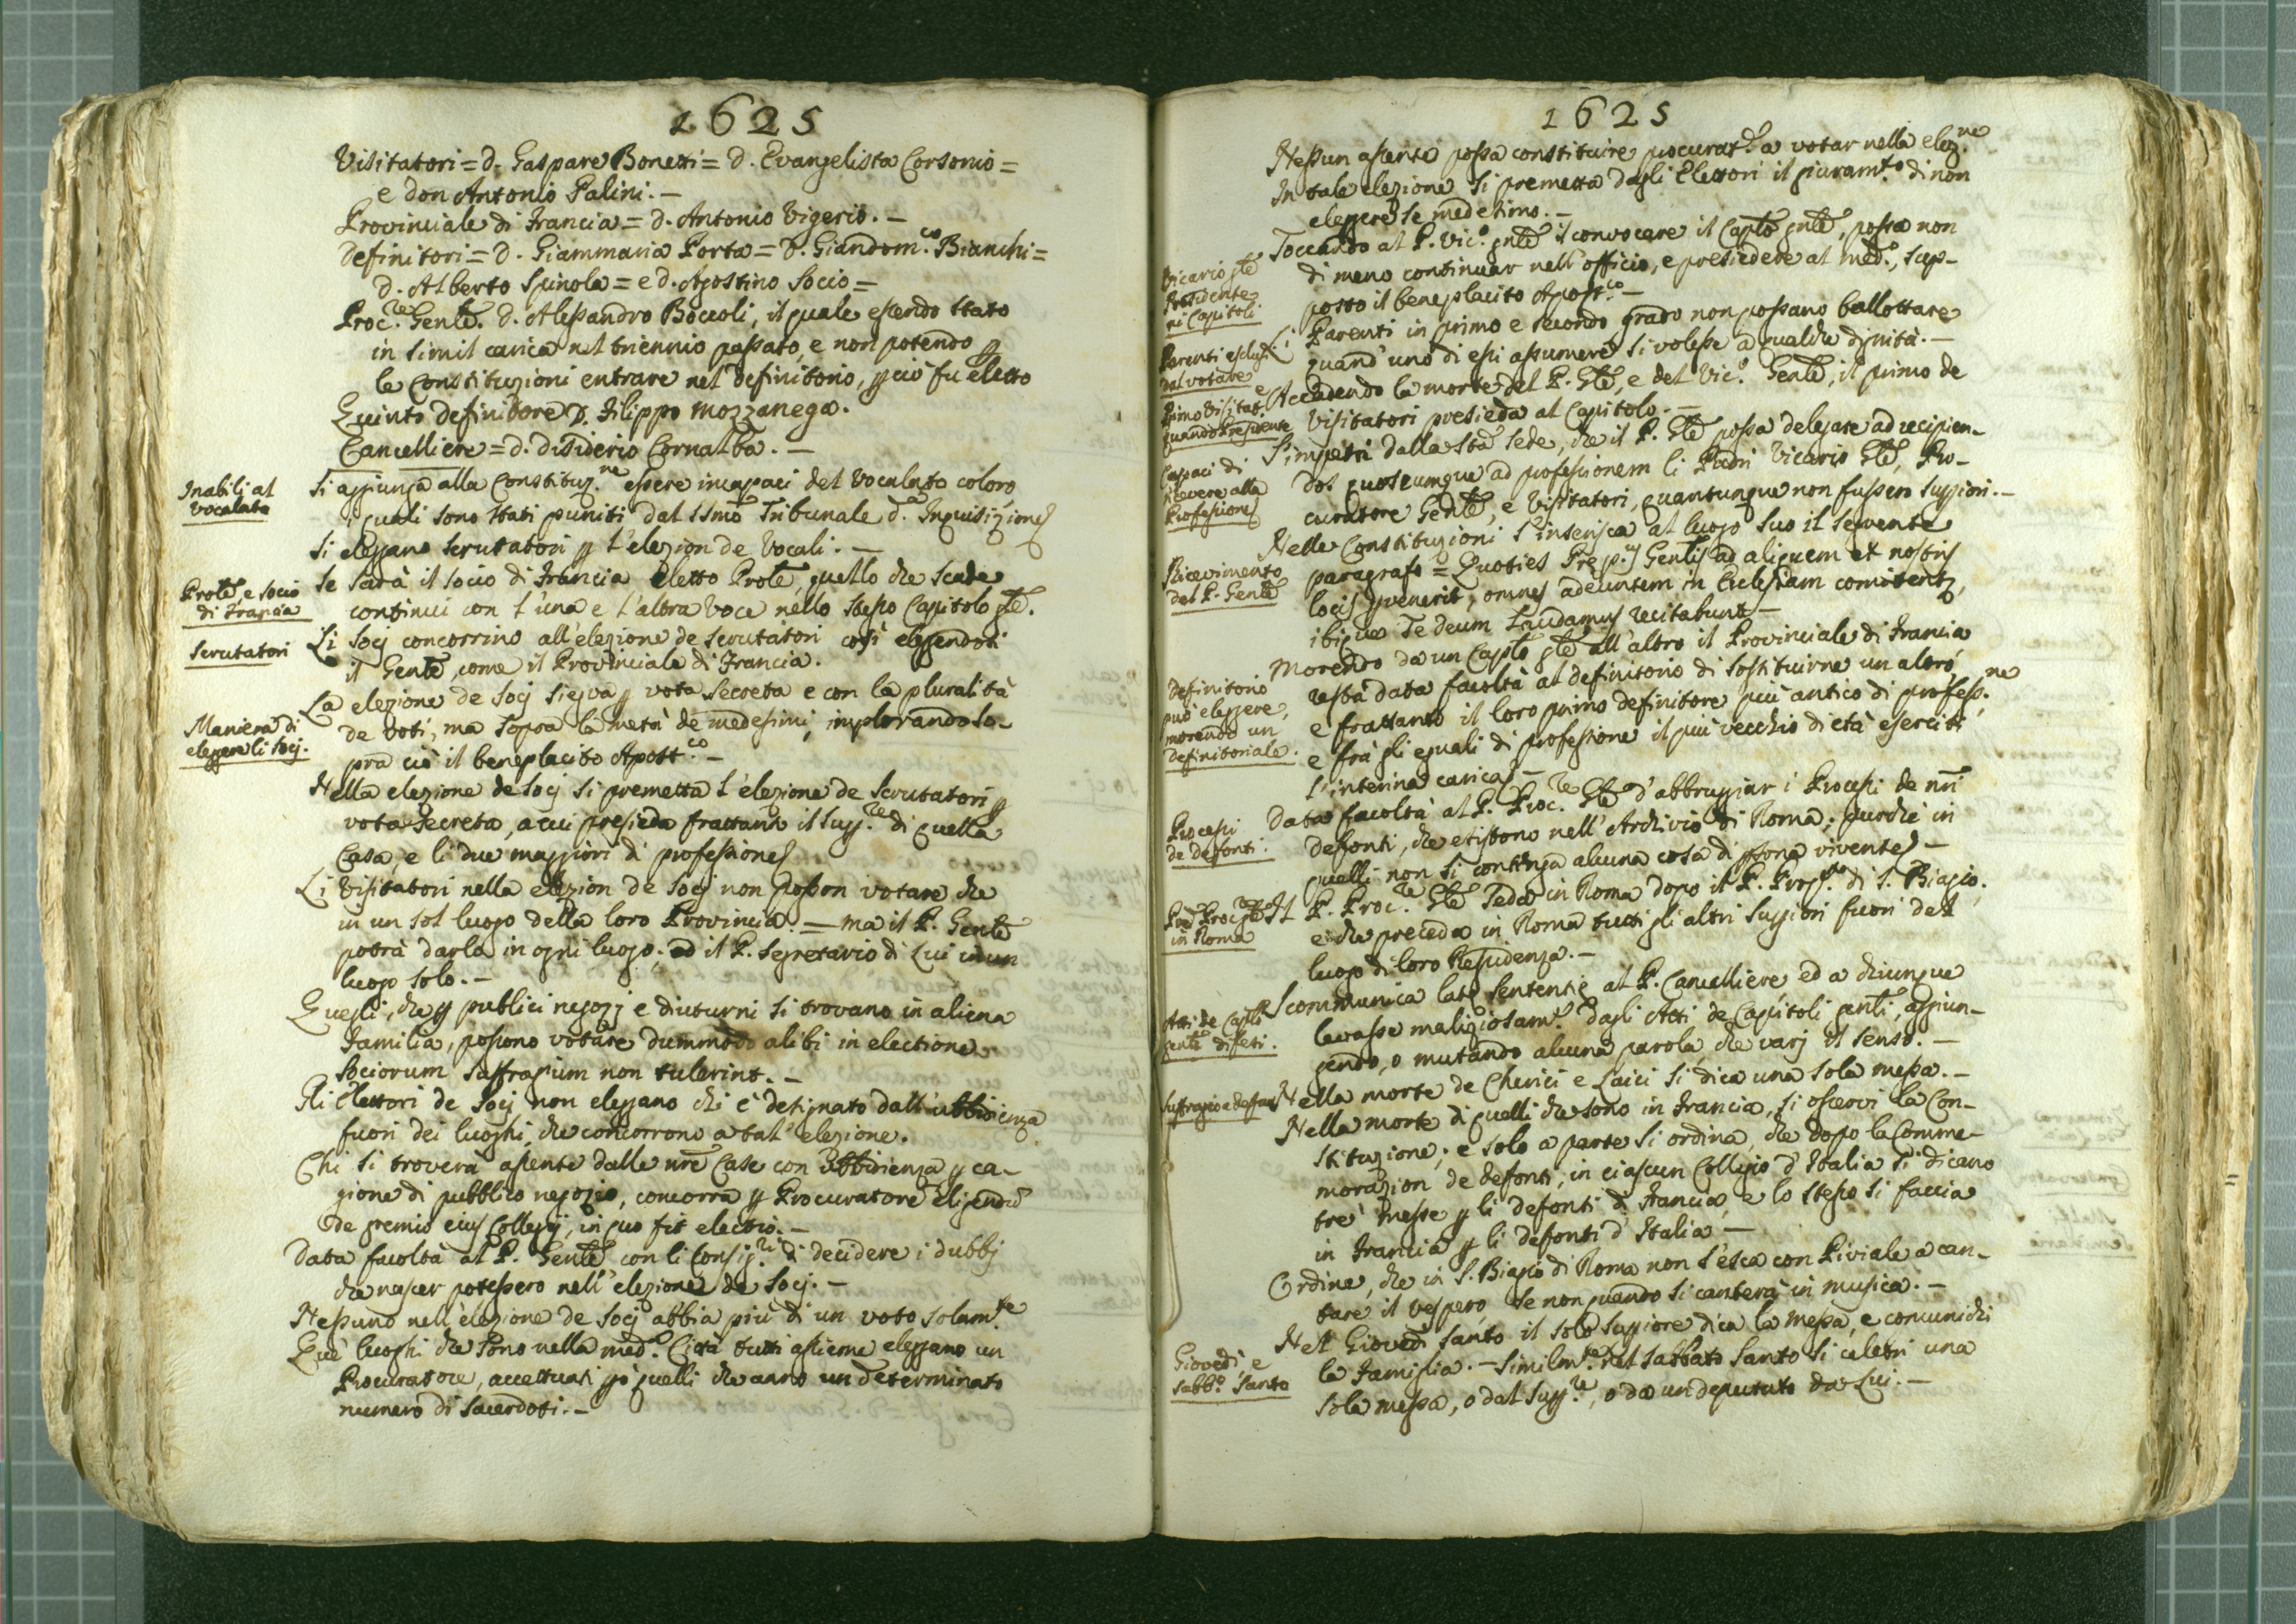 1625
Visitatori = d. Gaspare Bonetti = d. Evangelista Corsonio =
e don Antonio Palini. —
Provinciale di Francia = d. Antonio Vigerio. —
Definitori = d. Giammaria Porta = d. Giandom.co Bianchi =
d. Alberto Spinola = e d. Agostino Socio =
Proc.re Genle. d. Alessandro Boccoli, il quale essendo stato
in simil carica nel triennio passato, e non potendo p
le Constituzioni entrare nel definitorio, pciò fu eletto
Quinto definitore D. Filippo Mozzanega.
Cancelliere = d. Disiderio Cornalba. —
Inabilj al
Vocalato
Si aggiunga alla Constituz.ne essere incapaci del Vocalato coloro
i quali sono stati puniti dal Ssmo Tribunale d. Inquisizione
Si eleggano scrutatori p l'elezion de Vocali. —
Prole, e socio
di Francia
Se sarà il socio di Francia eletto Prole, quello che scade
continui con l'una e l'altra voce nello stesso Capitolo gle.
Scrutatori
Li Socj concorrino all'elezione de scrutatori così eleggendosi
il Genle, come il Provinciale di Francia.
Maniera di
eleggere li Socj.
La elezione de Socj siegua p vota secreta e con la pluralità
de voti, ma sopra la metà de medesimi, implorando so-
pra ciò il beneplacito Apost.co —
Nella elezione de Socj si premetta l'elezione de scrutatori p
vota secreta, a cui presieda frattanto il supp.re di quella
Casa, e li due maggiori di professione
Li Visitatori nella elezion de Socj non posson votare che
in un sol luogo della loro Provincia. = ma il P. Genle
potrà darla in ogni luogo, ed il P. Segretario di Lui in un
luogo solo. —
Quegli, che p publici negozj e diuturni si trovano in aliena
Familia, possono votare dummodo alibi in electione
Sociorum suffragium non tulerint. —
Gli Elettori de Socj non eleggano chi è designato dall'ubbidienza
fuori dei luoghi, che concorrono a tal elezione.
Chi si troverà assente dalle nre Case con ubbidienza p ca-
gione di pubblico negozio, concorra p Procuratore eligendū
de gremio ejus Collegij, in quo fit electio. —
Data facoltà al P. Genle con li Consig.ri di decidere i dubbj
che nascer potessero nell'elezione de Socj. —
Nessuno nell'elezione de Socj abbia più di un voto solam.te
Que' luoghi che sono nella med.a Città tutti assieme eleggano un
Procuratore, accettuati pò quelli che anno un determinato
numero di Sacerdoti. —
1625
Nessun assente possa constituire procurat.re a votar nella elez.ne
In tale elezione si premetta dagli Elettori il giuram.to di non
eleggere se medesimo. —
Vicario gle
Presidente
ne Capitoli
Toccando al P. Vic.o gnle il convocare il Caplo gnle, possa non
di meno continuar nell'officio, e presiedere al med.o, sup-
posto il beneplacito Apost.co —
Parenti esclusi
dal votare
Li Parenti in primo e secondo grado non possano ballottare
quand'uno di essi assumere si volesse a qualche dignità. —
Primo Visitat.e
quando Presidente
Accadendo la morte del P. Gle, e del Vic.o Genle, il primo de
Visitatori presieda al Capitolo. —
Capaci di
ricevere alla
Professione
S'impetri dalla Sta Sede, che il P. Gle possa delegare ad recipien-
dos quoscumque ad professionem li Padri Vicario Gle, Pro-
curatore Genle, e Visitatori, quantunque non fussero suppiori. —
Ricevimento
del P. Genle
Nelle Constituzioni s'inserisca al luogo suo il seguente
paragrafo = Quoties Prep.us Genlis ad aliquem ex nostris
locis pvenerit, omnes adeuntem in Ecclesiam comitentr,
ibique Te deum Laudamus recitabunt —
Definitorio
può eleggere,
morendo un
definitoriale.
Morendo da un Caplo gle all'altro il Provinciale di Francia
resta data facoltà al definitorio di sostituirne un altro,
e frattanto il loro primo definitore più antico di profess.ne
e frà gli eguali di professione il più vecchio di età eserciti
l'interina carica —
Processi
de defonti.
Data facoltà al P. Proc.re Gle d'abbruggiar i Processi de nri
defonti, che esistono nell'Archivio di Roma; purchè in
quelli non si contenga alcuna cosa di psona vivente —
Pre Proc.re Gle
in Roma
Il P. Proc.re Gle seda in Roma dopo il P. Prep.to di S. Biagio,
e che preceda in Roma tutti gli altri suppiori fuori del
luogo di loro Residenza. —
Atti de Caplli
genli difesi.
Scommunica latę sententię al P. Cancelliere, ed a chiunque
levasse maliziosam.e dagli Atti de Capitoli genli, aggiun-
gendo, o mutando alcuna parola, che varj il senso. —
Suffragio a defonti
Nella morte de Cherici e Laici si dica una sola messa. —
Nella morte di quelli che sono in Francia, si osservi la Con-
stituzione; e solo a parte si ordina, che dopo la Comme-
morazion de defonti, in ciascun Collegio d'Italia si dicano
trè messe p li defonti di Francia, e lo stesso si faccia
in Francia p li defonti d'Italia —
Ordine, che in S. Biagio di Roma non s'esca con Piviale a can-
tare il vespero, se non quando si canterà in musica. —
Giovedì, e
Sabb.o Santo
Nel Giovedì Santo il solo suppiore dica la messa, e comunichi
la Famiglia. — Similm.te nel Sabbato Santo si celebri una
sola messa, o dal supp.re, o da un deputato da Lui. —